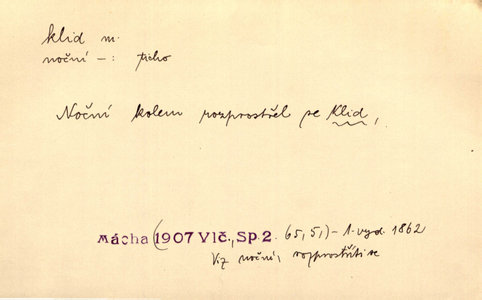 klid m.
noční – : ticho
Noční kolem rozprostřel se klid,
Mácha (1907 Vlč., Sp. 2. 65, 5,) – 1. vyd. 1862
Viz noční, rozprostříti se